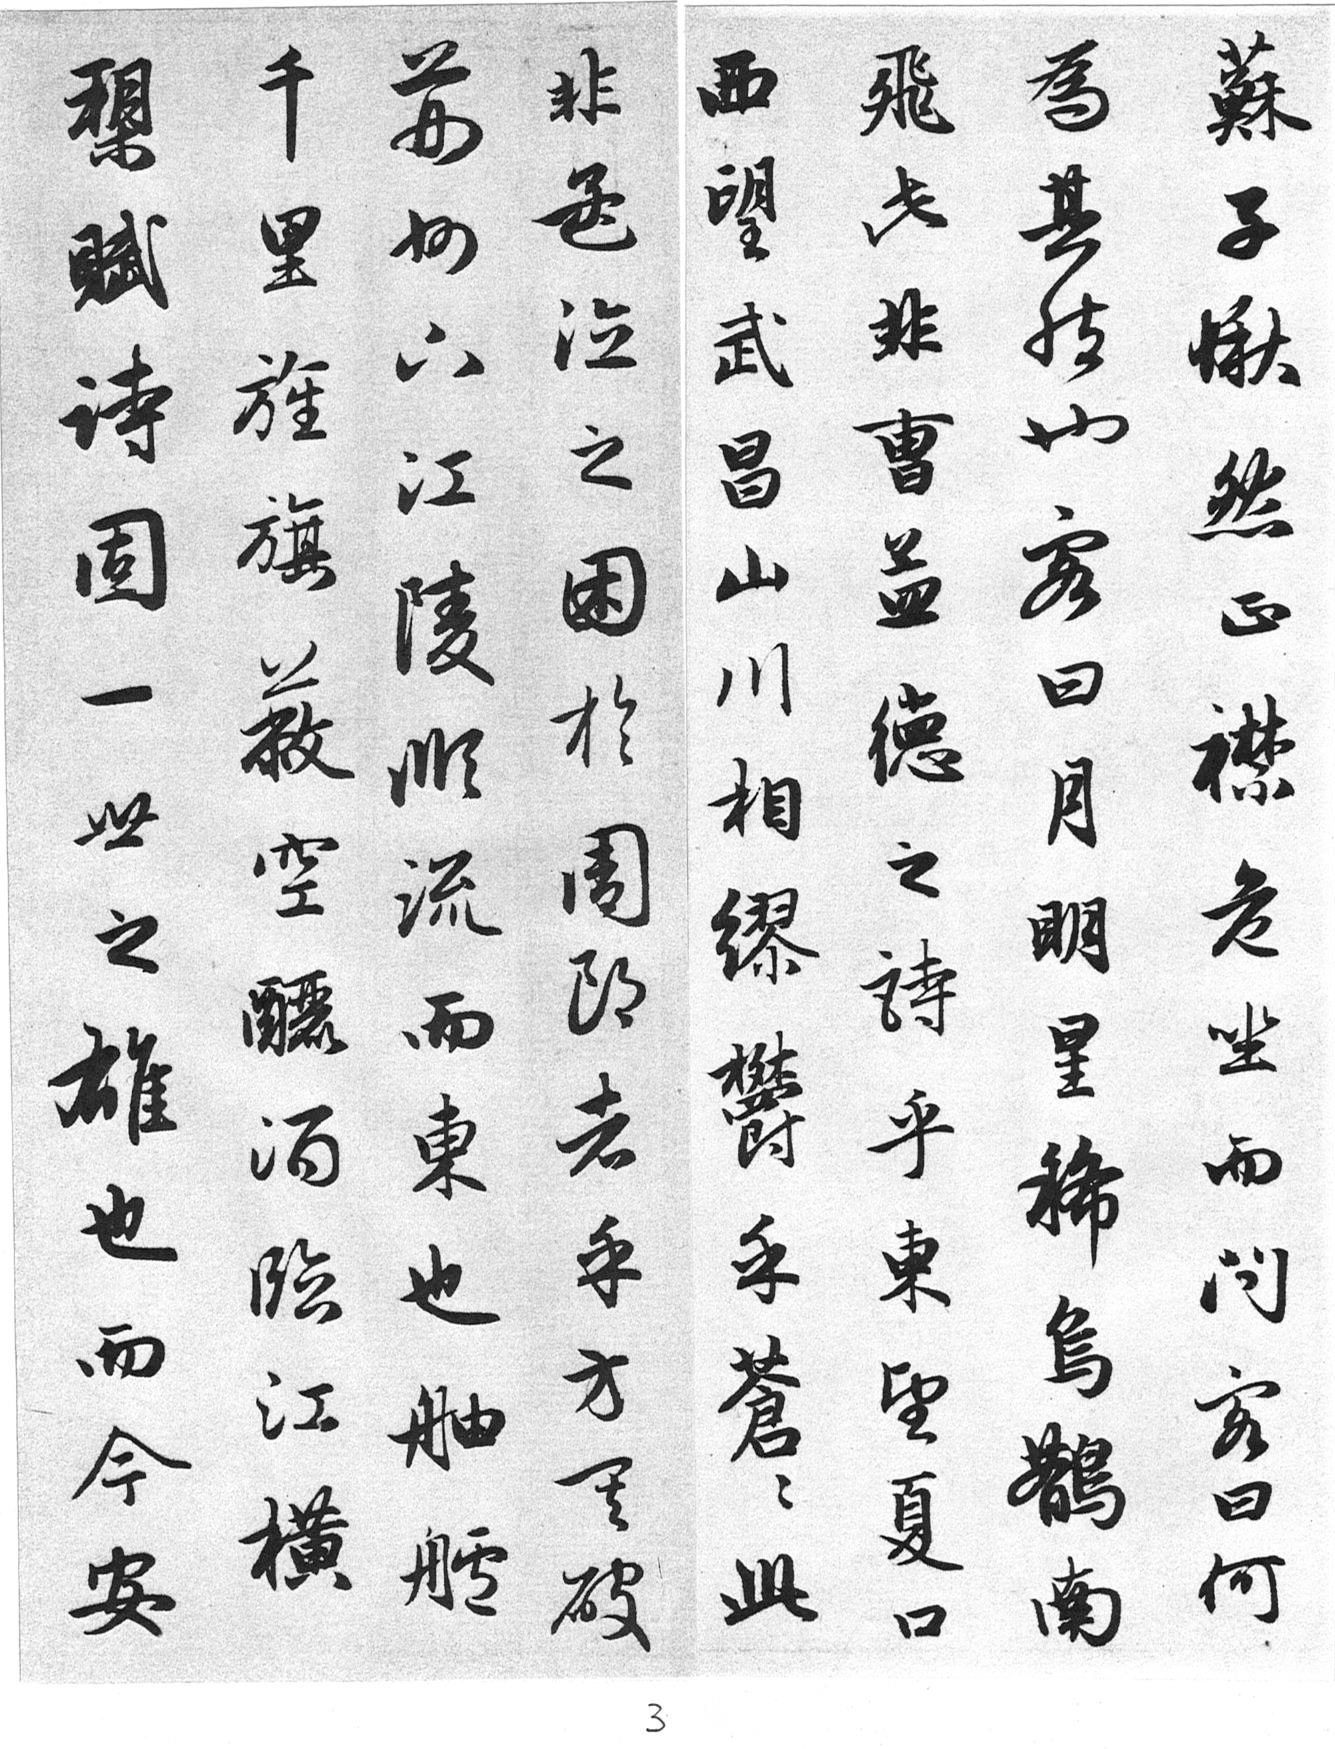 蘇子愀然正襟危坐而問客曰何
為其然也客曰月明星稀烏鵲南
飛此非曹孟德之詩乎東望夏口
西望武昌山川相繆鬱乎蒼〻此
非孟德之困於周郎者乎方其破
荊州下江陵順流而東也舳艫
千里旌旗蔽空釃酒臨江橫
槊賦詩固一世之雄也而今安
3